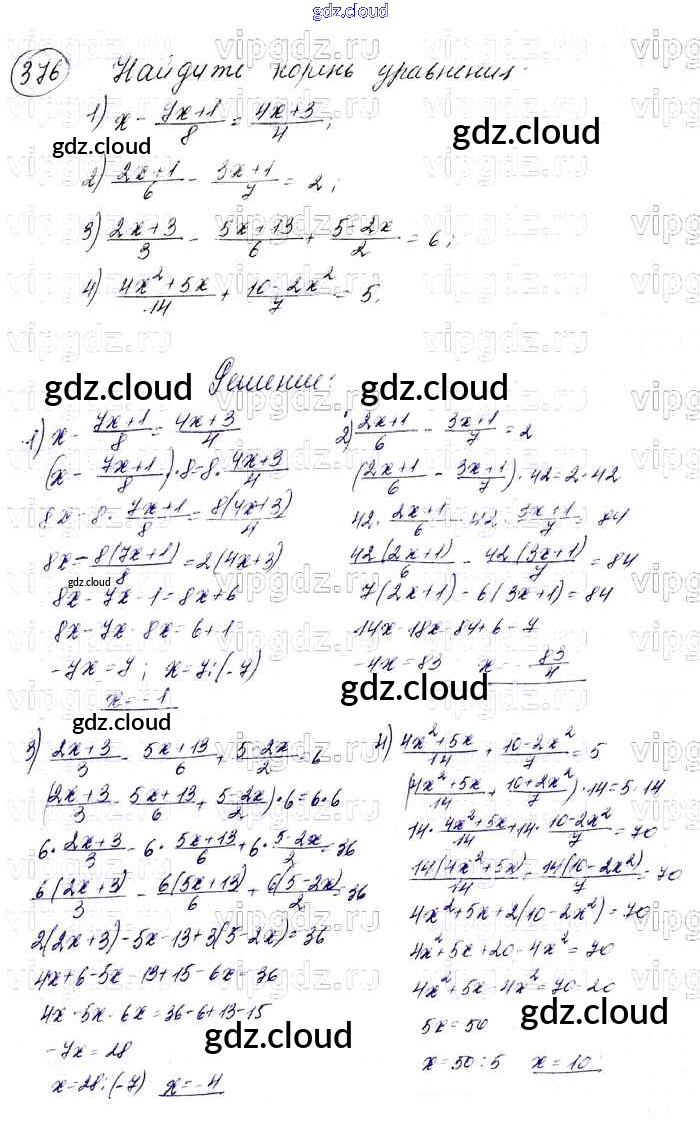 gdz.cloud
376 Найдите корень уравнения:
1) x - (7x+1)/8 = (4x+3)/4;
gdz.cloud
gdz.cloud
2) (2x+1)/6 - (3x+1)/7 = 2;
3) (2x+3)/3 - (5x+13)/6 + (5-2x)/2 = 6;
4) (4x²+5x)/14 + (10-2x²)/7 = 5.
Решение:
gdz.cloud
gdz.cloud
1) x - (7x+1)/8 = (4x+3)/4
(x - (7x+1)/8)·8=8·(4x+3)/4
8x-8·(7x+1)/8=8(4x+3)/4
8x-8(7x+1)/8=2(4x+3)
gdz.cloud
8x-7x-1=8x+6
8x-7x-8x=6+1
-7x=7; x=7:(-7)
x=-1
gdz.cloud
2) (2x+1)/6 - (3x+1)/7 = 2
((2x+1)/6 - (3x+1)/7)·42=2·42
42·(2x+1)/6 - 42·(3x+1)/7 = 84
42(2x+1)/6 - 42(3x+1)/7 = 84
7(2x+1)-6(3x+1)=84
14x-18x=84+6-7
-4x=83 x=-83/4
gdz.cloud
3) (2x+3)/3 - (5x+13)/6 + (5-2x)/2 = 6
((2x+3)/3 - (5x+13)/6 + (5-2x)/2)·6=6·6
6·(2x+3)/3 - 6·(5x+13)/6 + 6·(5-2x)/2 = 36
6(2x+3)/3 - 6(5x+13)/6 + 6(5-2x)/2 = 36
2(2x+3)-5x-13+3(5-2x)=36
4x+6-5x-13+15-6x=36
4x-5x-6x=36-6+13-15
-7x=28
gdz.cloud
x=28:(-7) x=-4
4) (4x²+5x)/14 + (10-2x²)/7 = 5
((4x²+5x)/14 + (10+2x²)/7)·14=5·14
14·(4x²+5x)/14+14·(10-2x²)/7=70
14(4x²+5x)/14 + 14(10-2x²)/7 = 70
4x²+5x+2(10-2x²)=70
4x²+5x+20-4x²=70
4x²+5x-4x²=70-20
5x=50
gdz.cloud
x=50:5 x=10